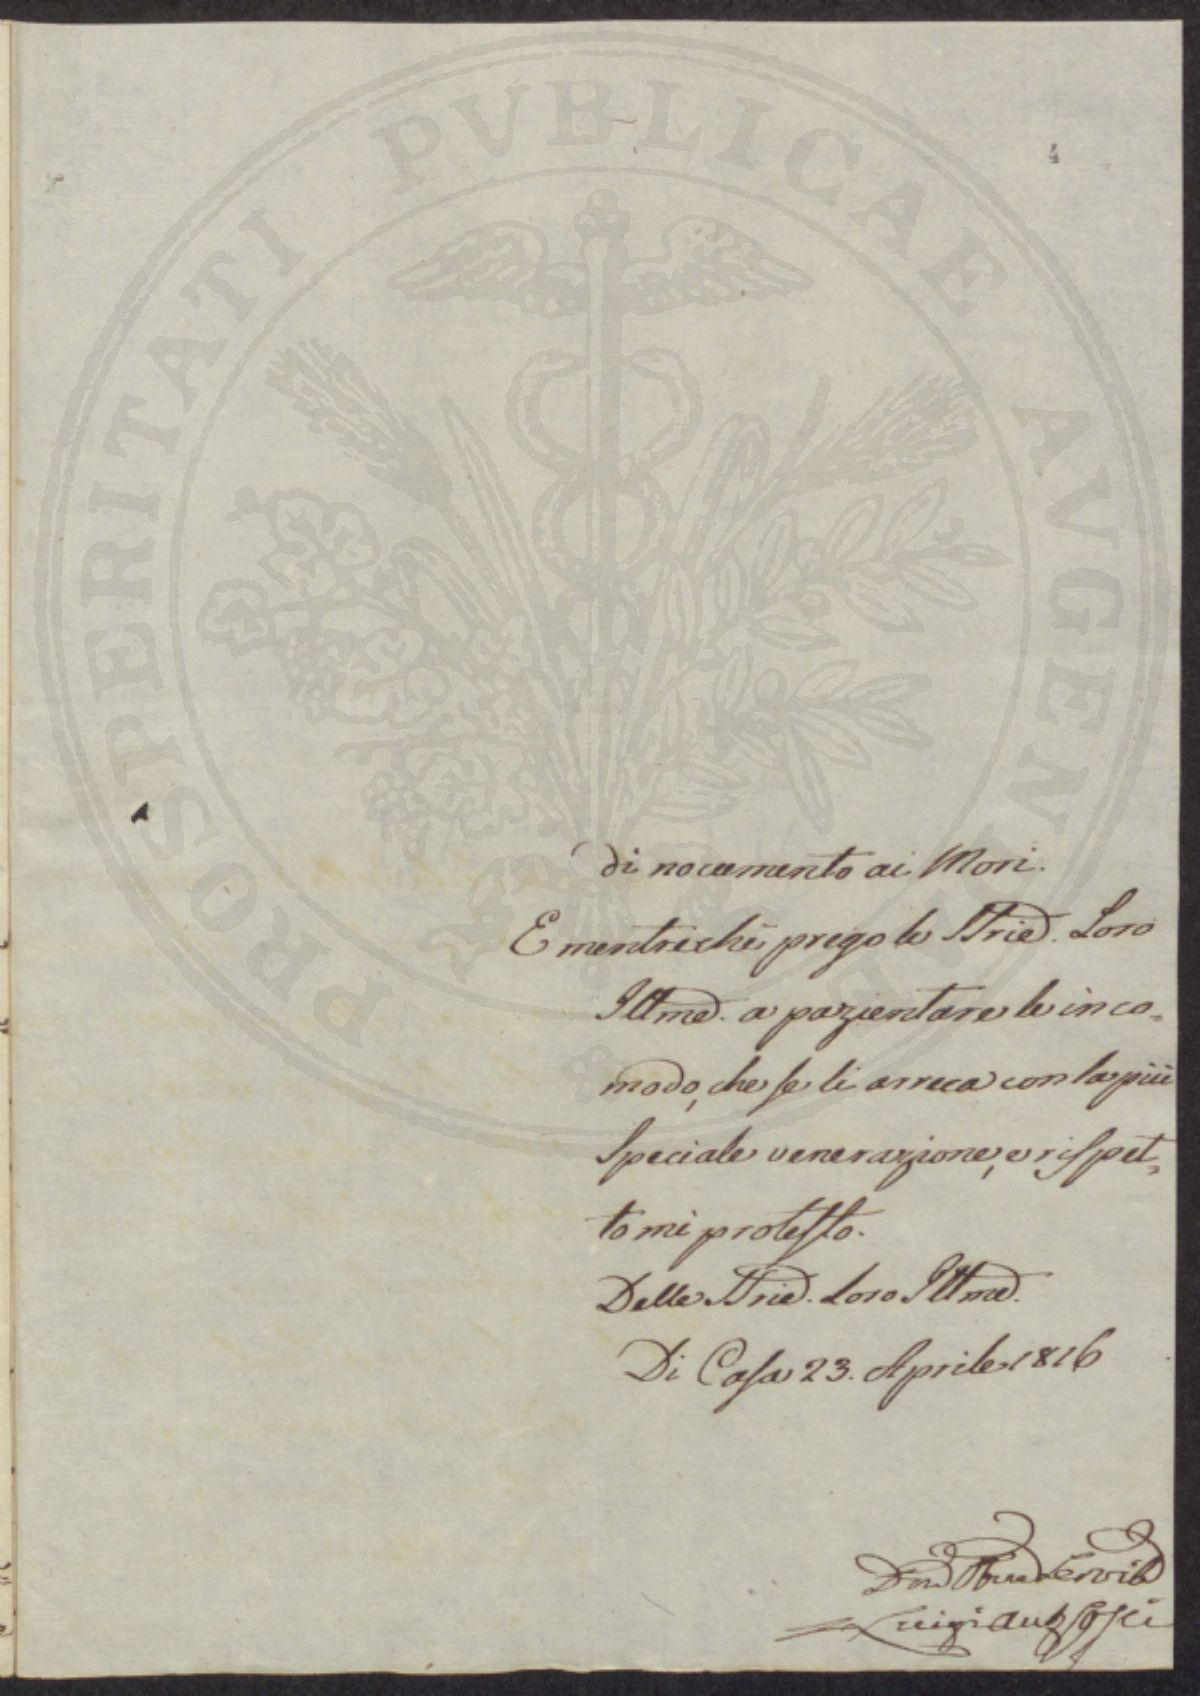 PROSPERITATI PVBLICAE AVGENDAE
4
di nocumento ai Mori.
E mentrechè prego le SSrie. Loro
Illme. a pazientare le inco„
modo, che se li arreca con la più
speciale venerazione, e rispet„
to mi protesto.
Delle SSrie. Loro Illme.
Di Casa 23. Aprile 1816
Luigi